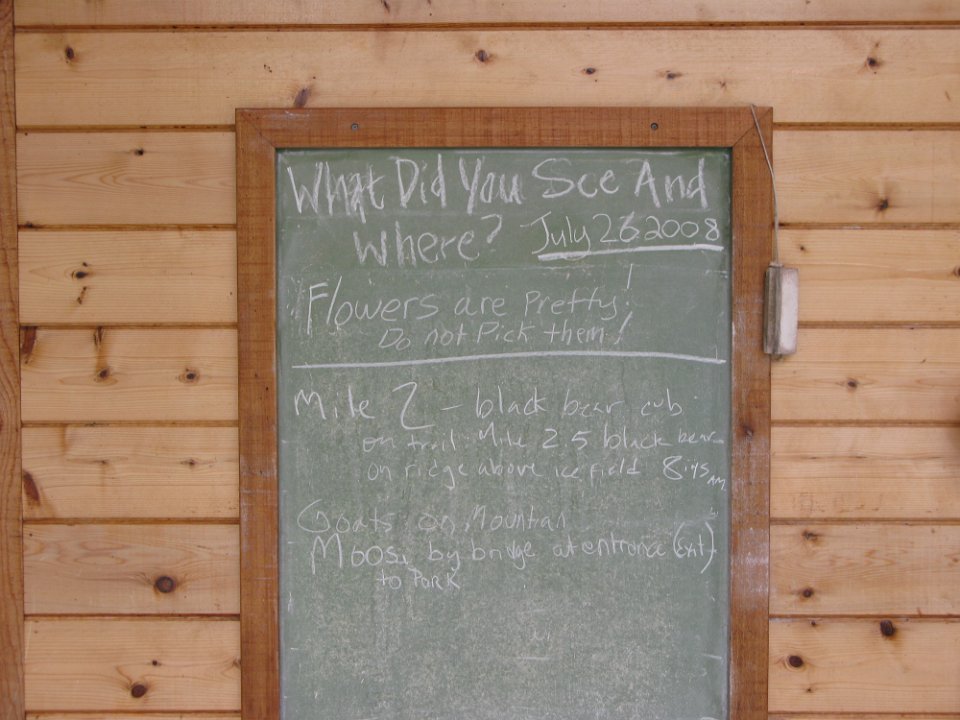 What Did You See And
Where? July 26 2008
Flowers are Pretty!
Do not Pick them!
Mile 2 - black bear cub
on trail Mile 2.5 black bear
on ridge above ice field 8:45 AM.
Goats on Mountian
Moose by bridge at entrance (Exit)
to Park